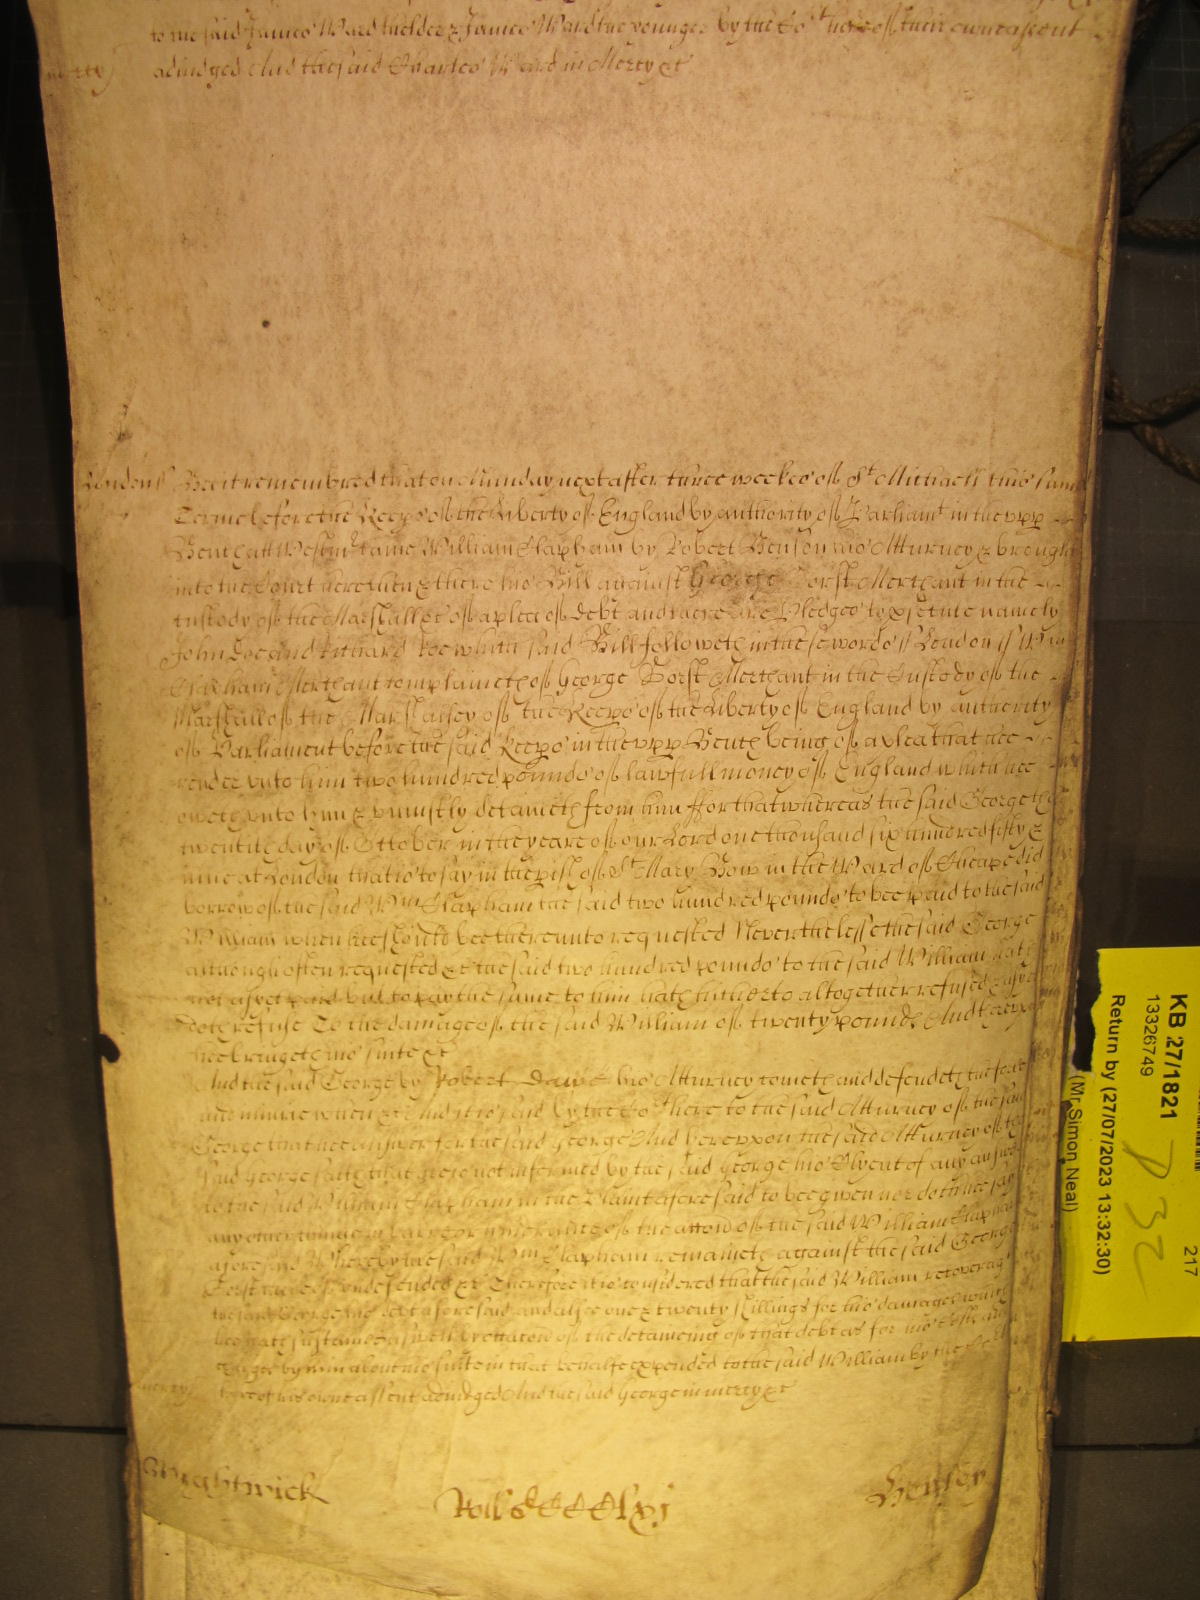 to the said James Ward thelder & James Ward the younger by the Co^rt here of their owne assent
adiudged And the said Charles Ward in Mercy &c
London ss Bee it remembred that on Munday next after three weekes of S^t Michaell this same
Terme before the Keep~s of the Liberty of England by authority of Parliam^t in the vpp
Bench att Westm^r came William Clapham by Robert Benson his Atturney & brought
into the Court here then & there his Bill against George Forst Merchant in the
custody of the Marshall &c of a plea of debt and there are Pledges to p~secute namely
John Doe and Richard Roe which said Bill followeth in these words ss London ss
Clapham Merchant complaineth of George Forst Merchant in the Custody of the
Marshall of the Marshalsey of the Keep~s of the Liberty of England by authority
of Parliament before the said Keep~s in the vpp Bench being of a plea that hee
render vnto him two hundred pounds of lawfull money of England which hee
oweth vnto him & vniustly detaineth from him ffor that whereas the said George the
twentith day of October in the yeare of our Lord one thousand six hundred fifty &
nine at London that is to say in the p~ish of S^t Mary Bow in the Ward of Cheape did
borrow of the said W^m Clapham the said two hundred pounds to bee paid to the said
William when hee should bee thereunto requested Neverthelesse the said George
although often requested &c the said two hundred pounds to the said William hath
not as yet paid but to pay the same to him hath hitherto altogether refused & as yet
doth refuse To the damage of the said William of twenty pounds And thereupon
hee bringeth his suite &c
And the said George by Robert Dawe his Atturney cometh and defendeth the force
and iniurie when &c And it is said by the Co^rt here to the said Atturney of the said
George that hee answer for the said George And herevpon the said Atturney of the
said George saith that he is not informed by the said George his Clyent of any answer
to the said William Clapham in the Plaint aforesaid to bee given nor doth hee say
any other thinge in barr or p~clusion of the accon of the said William Clapham
aforesaid Whereby the said W^m Clapham remaineth against the said George
Forst thereof vndefended &c Therefore it is considered that the said William recover ag^t
the said George his debt aforesaid and alsoe one & twenty shillings for his damages which
hee hath sustained aswell by occation of the detaineing of that debt as for his Costs and
charges by him about his suite in that behalfe expended to the said William by the
here of his owne assent adiudged And the said George in mercy &c
mercy
Wightwick
Roll CCCClxj
Henley
KB 27/1821
13326749
Return by (27/07/2023 13:32:30)
(Mr Simon Neal)
217